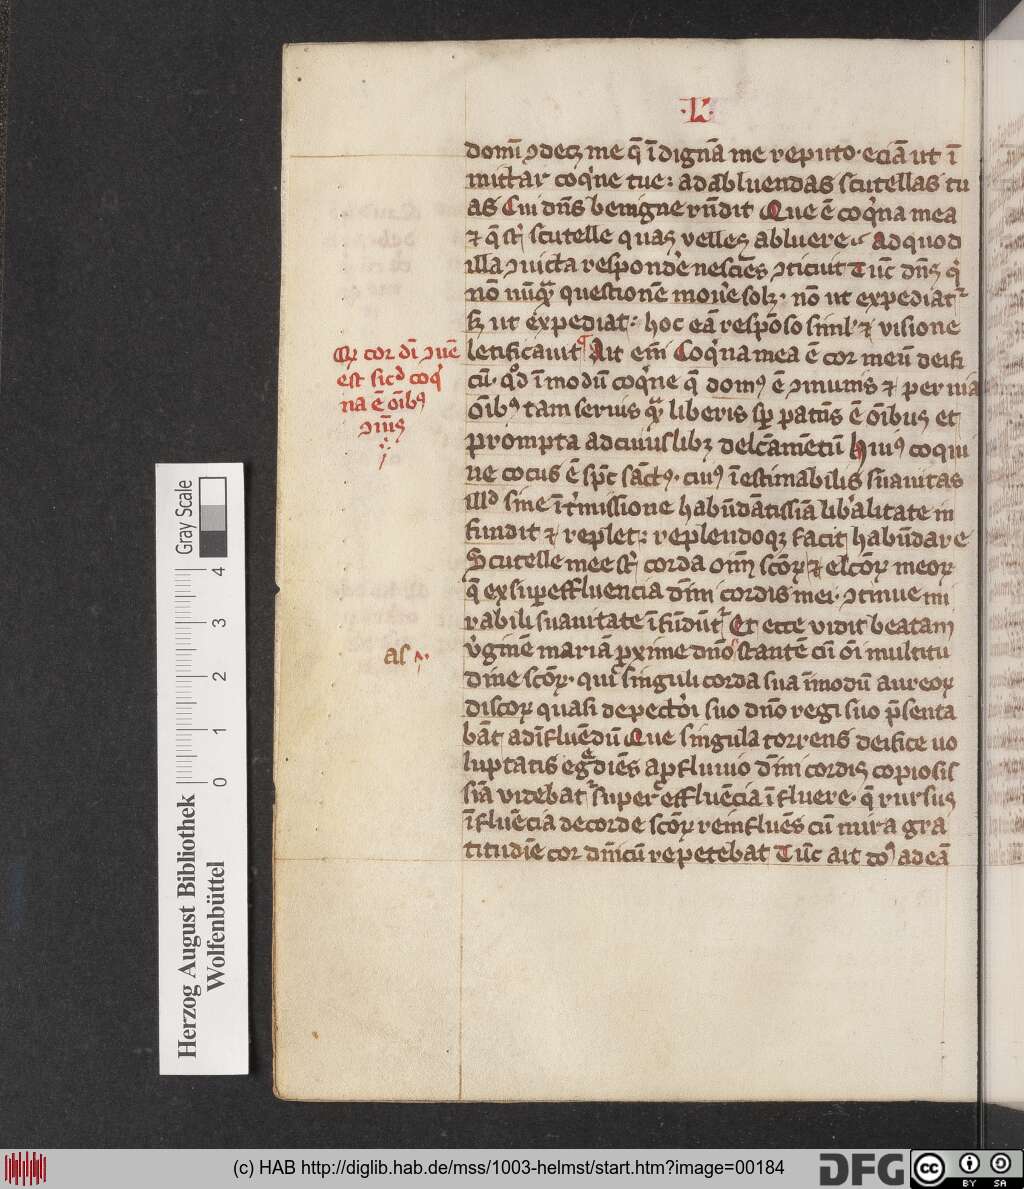 ·L·
domī ꝯdecꝫ me q̄ īdignā me reputo · eciā ut ī
mittar coqͥne tue : ad abluendas scutellas tu
as Cui dn̄s benigne rn̄dit Que ē coqͥna mea
⁊ q̄ st̄ scutelle quas velles abluere Ad quod
illa ꝯuicta respondēe nesciēs ꝯticuit Tūc dn̄s qͥ
nō nūqᷓ questionē mouēe solꝫ · nō ut expediatᷣ
sꝫ ut expediat : hoc eā respōso siml' ⁊ visione
letificauit Ait em̄ Coqͥna mea ē cor meū deifi
cū · qᷓd ī modū coqͥne q̄ domꝰ ē ꝯmunis ⁊ peruia
oībꝰ tam seruis qᷓ liberis sp̄ patēs ē oībus et
prompta ad cuiuslibꝫ delcāmētū Huiꝰ coqui
ne cocus ē sp̄c sāctꝰ · cuiꝰ īestimabilis suauitas
illᷣd sine īt'missione habūdātissīa lib'alitate in
fundit ⁊ replet : replendoqꝫ facit habūdare
Scutelle mee st̄ corda oīm scōꝝ ⁊ elcōꝝ meoꝝ
q̄ ex supereffluencia d'īni cordis mei · ꝯtinue mi
rabili suauitate īfūdūtᷣ Et ecce vidit beatam
v'ginē mariā ꝓxime dn̄o stantē cū oī multitu
dine scōꝝ · qui singuli corda sua ī modū aureoꝝ
discoꝝ quasi de pectōi suo dn̄o regi suo p̄senta
bāt ad īfluēdū Que singula torrens deifice uo
luptatis egᷓdiēs a ꝓfluuio d'īni cordis copiosis
sīa videbatᷣ super effluēcia īfluere · q̄ rursus
īfluēcia de corde scōꝝ reinfluēs cū mira gra
titudīe cor dn̄icū repetebat Tūc ait do' ad eā
Qꝫ cor dī ꝯuē
est sicᷣd coqͥ
na ē oībꝰ
ꝯmūs
as
Gray Scale
0 1 2 3 4
Herzog August Bibliothek
Wolfenbüttel
(c) HAB http://diglib.hab.de/mss/1003-helmst/start.htm?image=00184
DFG
cc BY SA